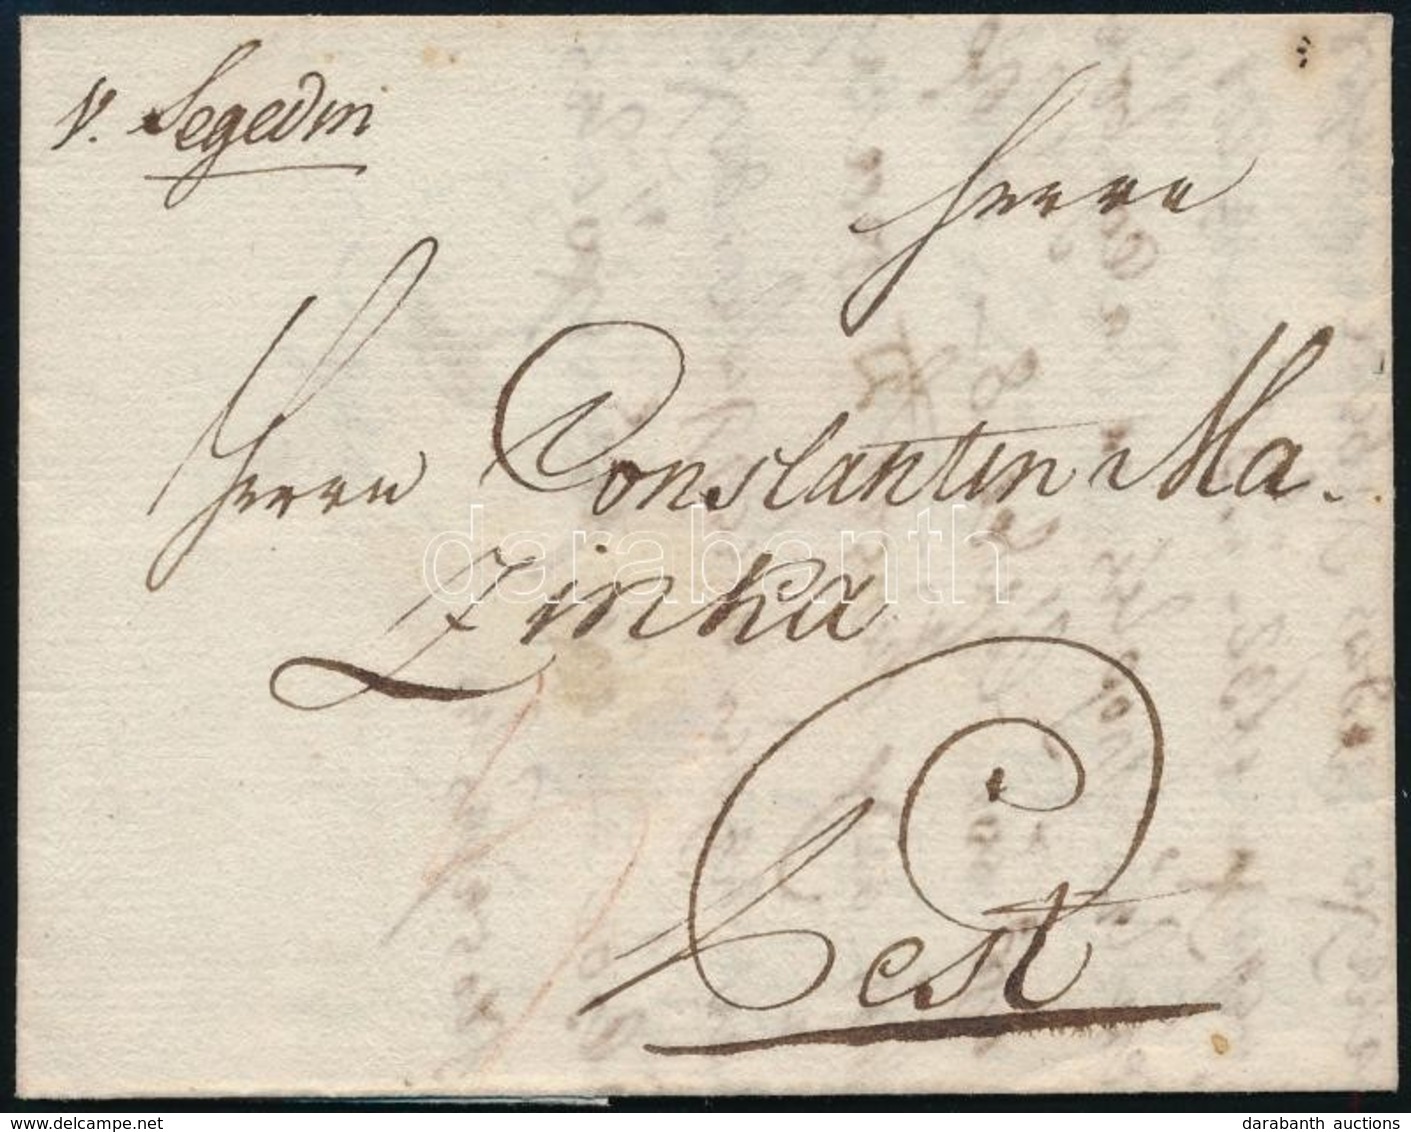 v. Segedin
Herrn
Herrn Constantin Ma
zinka
Pest
darabanth
www.delcampe.net
darabanth auctions